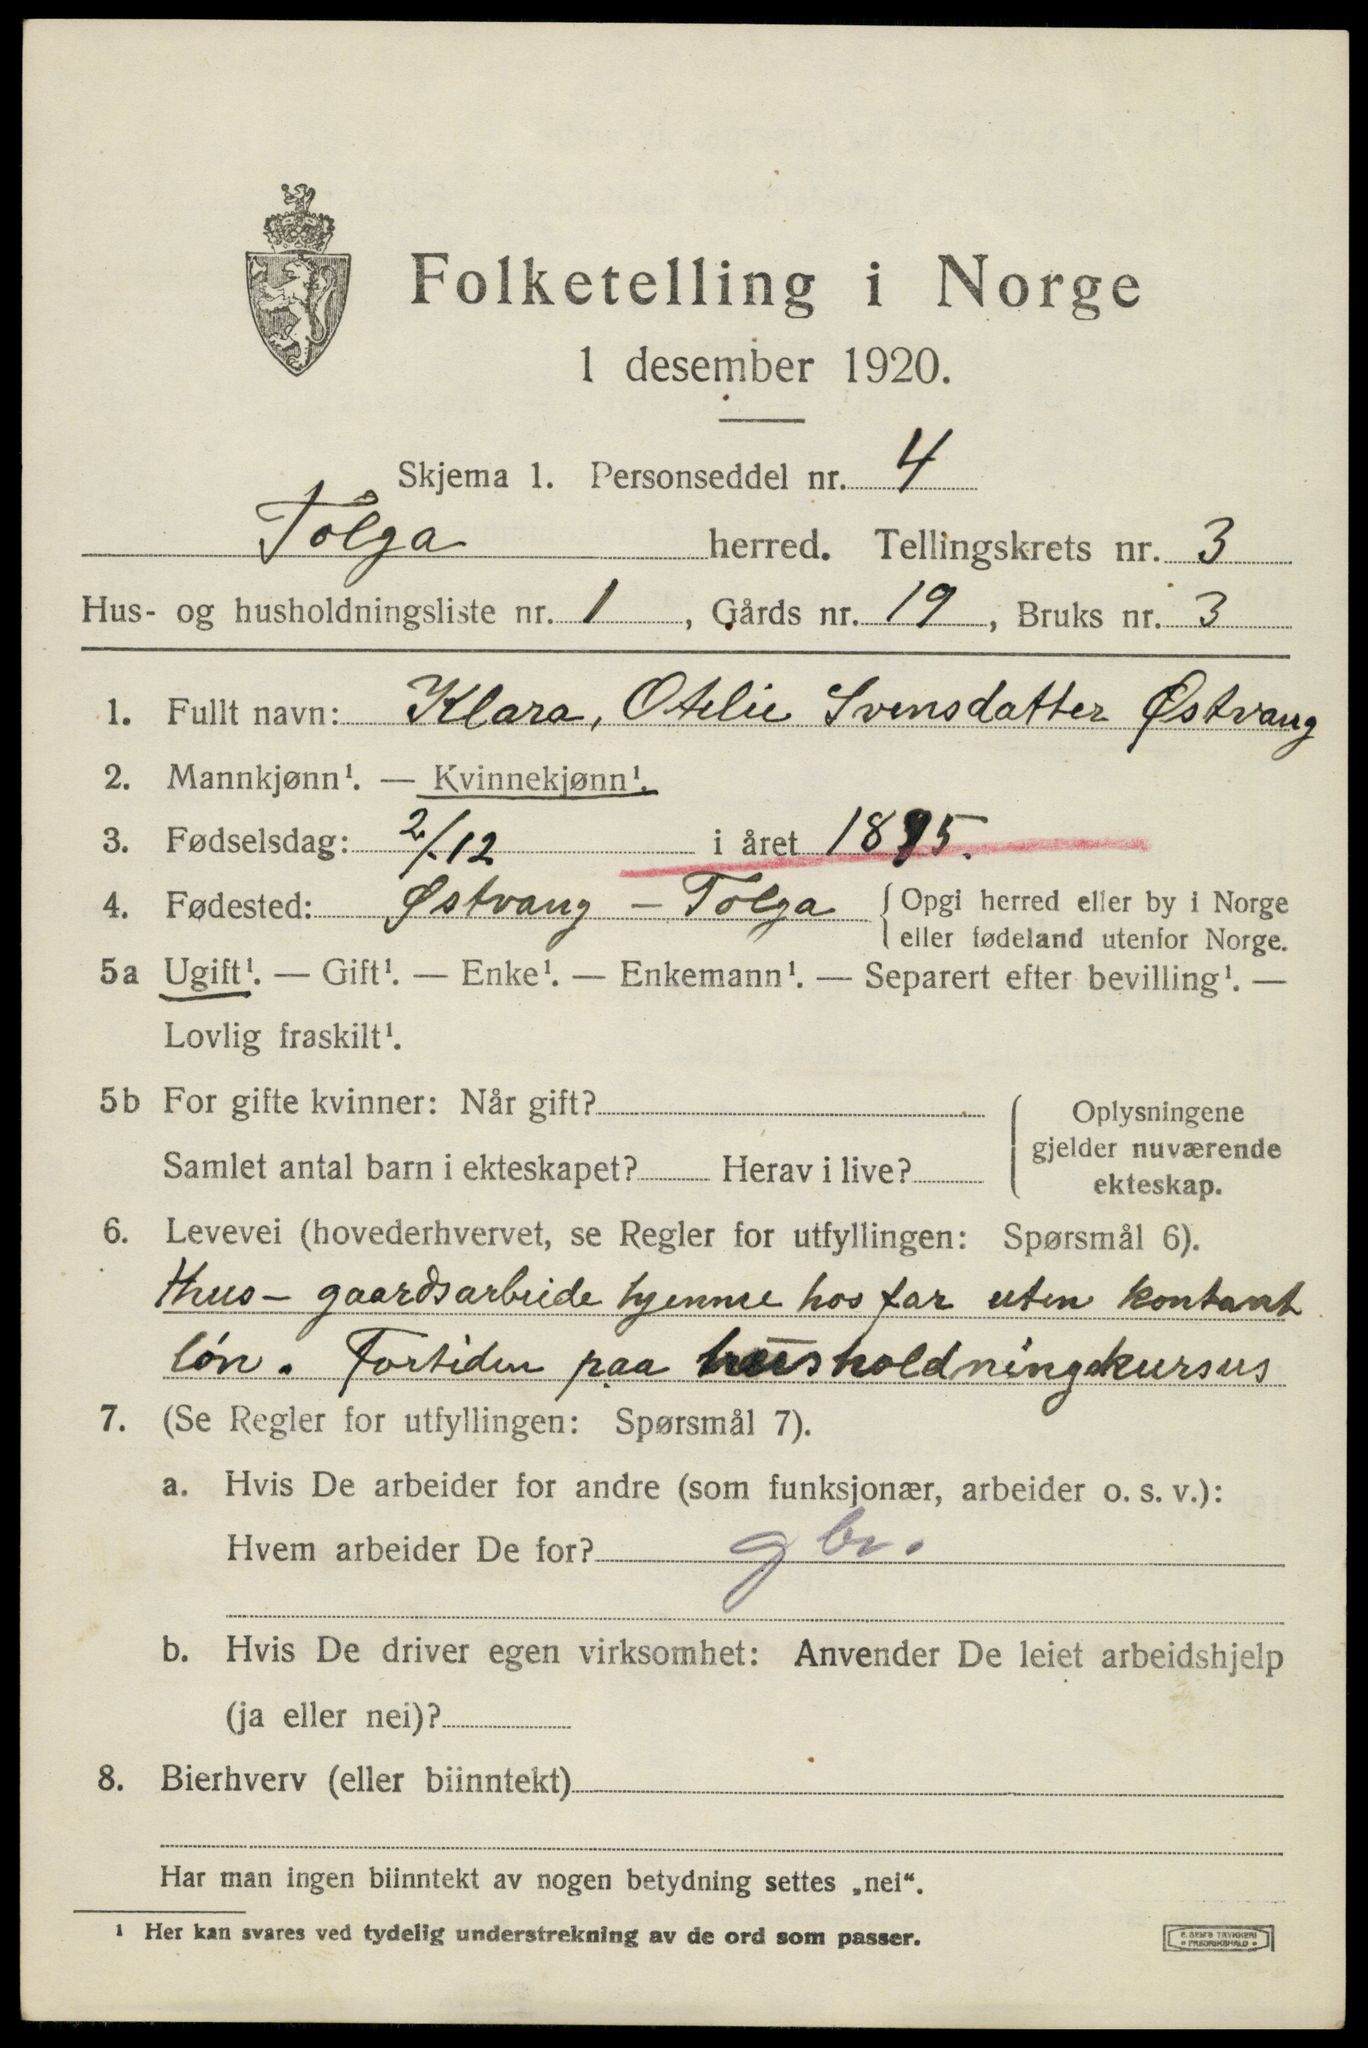 Folketelling i Norge
1 desember 1920.
Skjema 1. Personseddel nr. 4
Tolga herred. Tellingskrets nr. 3
Hus- og husholdningsliste nr. 1, Gårds nr. 19, Bruks nr. 3
1. Fullt navn: Klara, Otelie Svensdatter Østvang
2. Mannkjønn¹. — Kvinnekjønn¹.
3. Fødselsdag: 2/12 i året 1895.
4. Fødested: Østvang - Tolga { Opgi herred eller by i Norge
eller fødeland utenfor Norge.
5a Ugift¹. — Gift¹. — Enke¹. — Enkemann¹. — Separert efter bevilling¹. —
Lovlig fraskilt¹.
5b For gifte kvinner: Når gift?
Samlet antal barn i ekteskapet? Herav i live?
Oplysningene
gjelder nuværende
ekteskap.
6. Levevei (hovederhvervet, se Regler for utfyllingen: Spørsmål 6).
Hus- gaardsarbeide hjemme hos far uten kontant
løn. Fortiden paa husholdningskursus
7. (Se Regler for utfyllingen: Spørsmål 7).
a. Hvis De arbeider for andre (som funksjonær, arbeider o. s. v.):
Hvem arbeider De for? gbr.
b. Hvis De driver egen virksomhet: Anvender De leiet arbeidshjelp
(ja eller nei)?
8. Bierhverv (eller biinntekt)
Har man ingen biinntekt av nogen betydning settes „nei“.
¹ Her kan svares ved tydelig understrekning av de ord som passer.
E. SEM'S TRYKKERI
FREDRIKSHALD